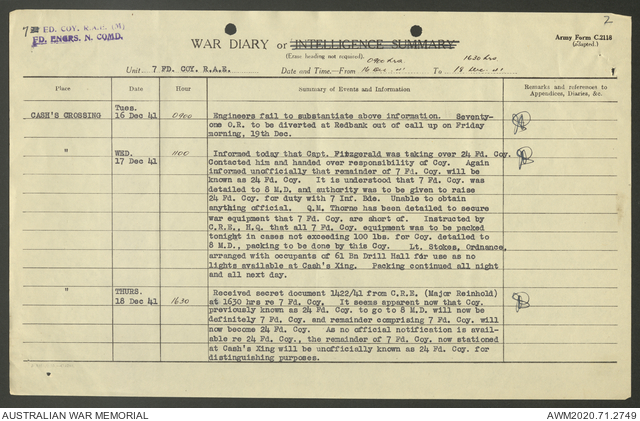 7 FD. COY. R.A.E. (M)
FD. ENGRS. N. COMD.
2
WAR DIARY or INTELLIGENCE SUMMARY
Army Form C.2118
(adapted.)
(Erase heading not required).
0900 hrs
1630 hrs
Unit 7 FD. COY. R.A.E. Date and Time—From 16 Dec. 41 To 18 Dec. 41
Place Date Hour Summary of Events and Information Remarks and references to
Appendices, Diaries, &c.
CASH'S CROSSING Tues. 16 Dec 41 0900 Engineers fail to substantiate above information. Seventy-
one O.R. to be diverted at Redbank out of call up on Friday
morning, 19th Dec.
" WED. 17 Dec 41 1100 Informed today that Capt. Fitzgerald was taking over 24 Fd. Coy.
Contacted him and handed over responsibility of Coy. Again
informed unofficially that remainder of 7 Fd. Coy. will be
known as 24 Fd. Coy. It is understood that 7 Fd. Coy. was
detailed to 8 M.D. and authority was to be given to raise
24 Fd. Coy. for duty with 7 Inf. Bde. Unable to obtain
anything official. Q.M. Thorne has been detailed to secure
war equipment that 7 Fd. Coy. are short of. Instructed by
C.R.E., H.Q. that all 7 Fd. Coy. equipment was to be packed
tonight in cases not exceeding 100 lbs. for Coy. detailed to
8 M.D., packing to be done by this Coy. Lt. Stokes, Ordnance,
arranged with occupants of 61 Bn Drill Hall for use as no
lights available at Cash's Xing. Packing continued all night
and all next day.
" THURS. 18 Dec 41 1630 Received secret document 1422/41 from C.R.E. (Major Reinhold)
at 1630 hrs re 7 Fd. Coy. It seems apparent now that Coy.
previously known as 24 Fd. Coy. to go to 8 M.D. will now be
definitely 7 Fd. Coy. and remainder comprising 7 Fd. Coy. will
now become 24 Fd. Coy. As no official notification is avail-
able re 24 Fd. Coy., the remainder of 7 Fd. Coy. now stationed
at Cash's Xing will be unofficially known as 24 Fd. Coy. for
distinguishing purposes.
AUSTRALIAN WAR MEMORIAL
AWM2020.71.2749